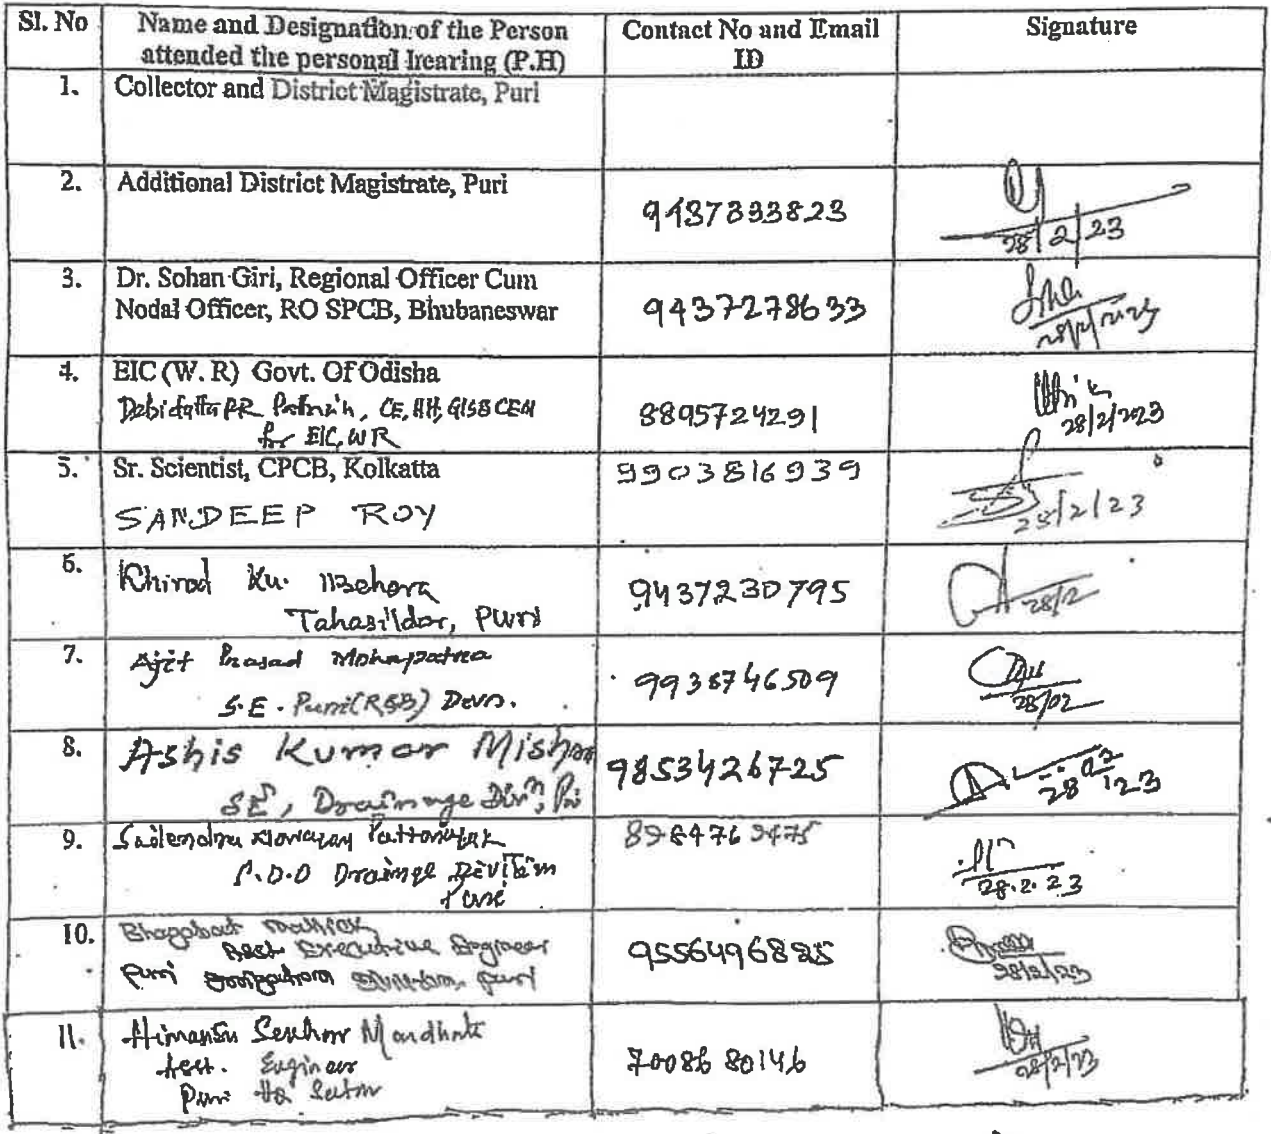 Sl. No
Name and Designation of the Person
attended the personal hearing (P.H)
Contact No and Email
ID
Signature
1.
Collector and District Magistrate, Puri
2.
Additional District Magistrate, Puri
9437333823
28/2/23
3.
Dr. Sohan Giri, Regional Officer Cum
Nodal Officer, RO SPCB, Bhubaneswar
9437278633
28/2/2023
4.
EIC (W. R) Govt. Of Odisha
Debidatta PR. Patnaik, CE,
for EIC, WR
8895724291
28/2/2023
5.
Sr. Scientist, CPCB, Kolkatta
SANDEEP ROY
9903816939
28/2/23
6.
Khirod Ku. Behera
Tahasildar, Puri
9437230795
28/2
7.
Ajit Prasad Mohapatra
S.E. Puri (R&B) Divn.
9938746509
28/02
8.
Ashis Kumar Mishra
SE, Drainage Divn, Puri
9853426725
28.02.23
9.
Sailendra Narayan Pattanayak
Drainage Division
Puri
28.2.23
10.
Bhagabat Mallick
Asst Executive Engineer
Puri Irrigation Division, Puri
9556496825
28/2/23
11.
Himansu Sekhar Mardhata
Asst. Engineer
Puri
7008680146
28/2/23